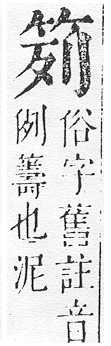 俗字舊註音
例籌也泥